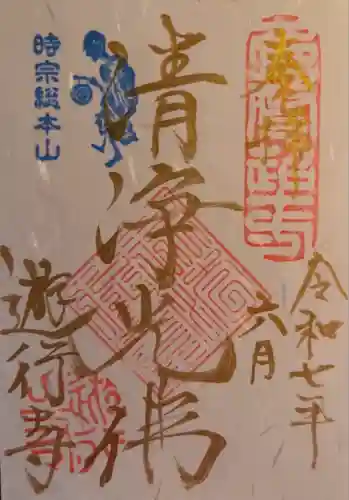 奉拝
令和七年
六月
清浄光佛
時宗総本山
遊行寺